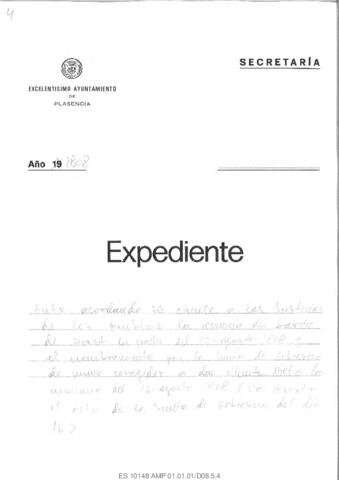 4
SECRETARÍA
EXCELENTISIMO AYUNTAMIENTO
DE
PLASENCIA
Año 19 1808
Expediente
Auto acordando se circule a las Justicias
de los pueblos la
de la noche del 15 agosto 1808 y
el nombramiento por la Junta de Gobierno
de nuevo corregidor a don Vicente Nieto la
mañana del 16 agosto 1808
el acta de la Junta de Gobierno del día
16)
ES 10148 AMP 01.01.01/D08.5.4